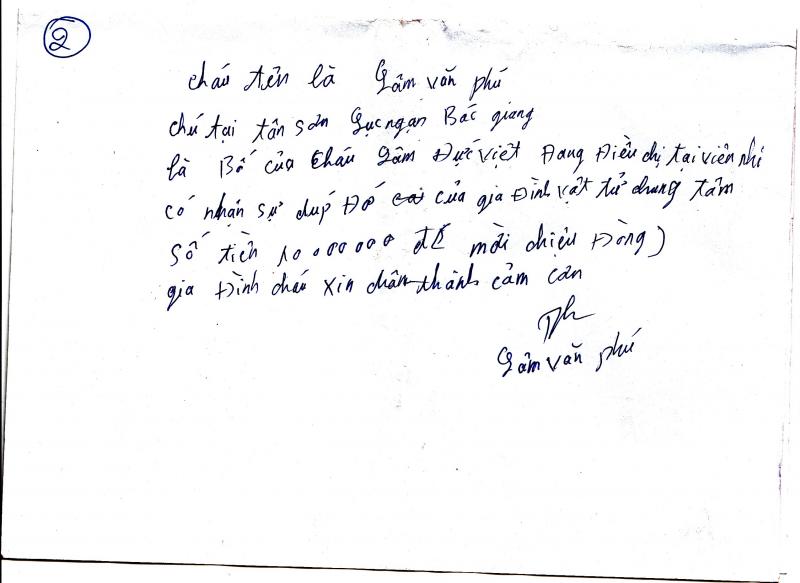 2
cháu tên là Lâm văn phú
chú tại tân sơn Lục ngạn Bắc giang
là Bố của cháu Lâm Đức việt Đang Điều chị tại viên nhi
có nhận sự dup Đố của gia Đình vật tử chung tâm
Số tiền 10.000000 đ ( mời chiệu Đồng)
gia Đình cháu xin chân thành cảm cơn
Lâm văn phú